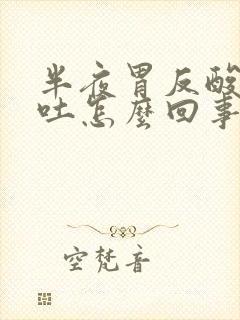 半夜胃反酸
吐怎麼回事
空梵音